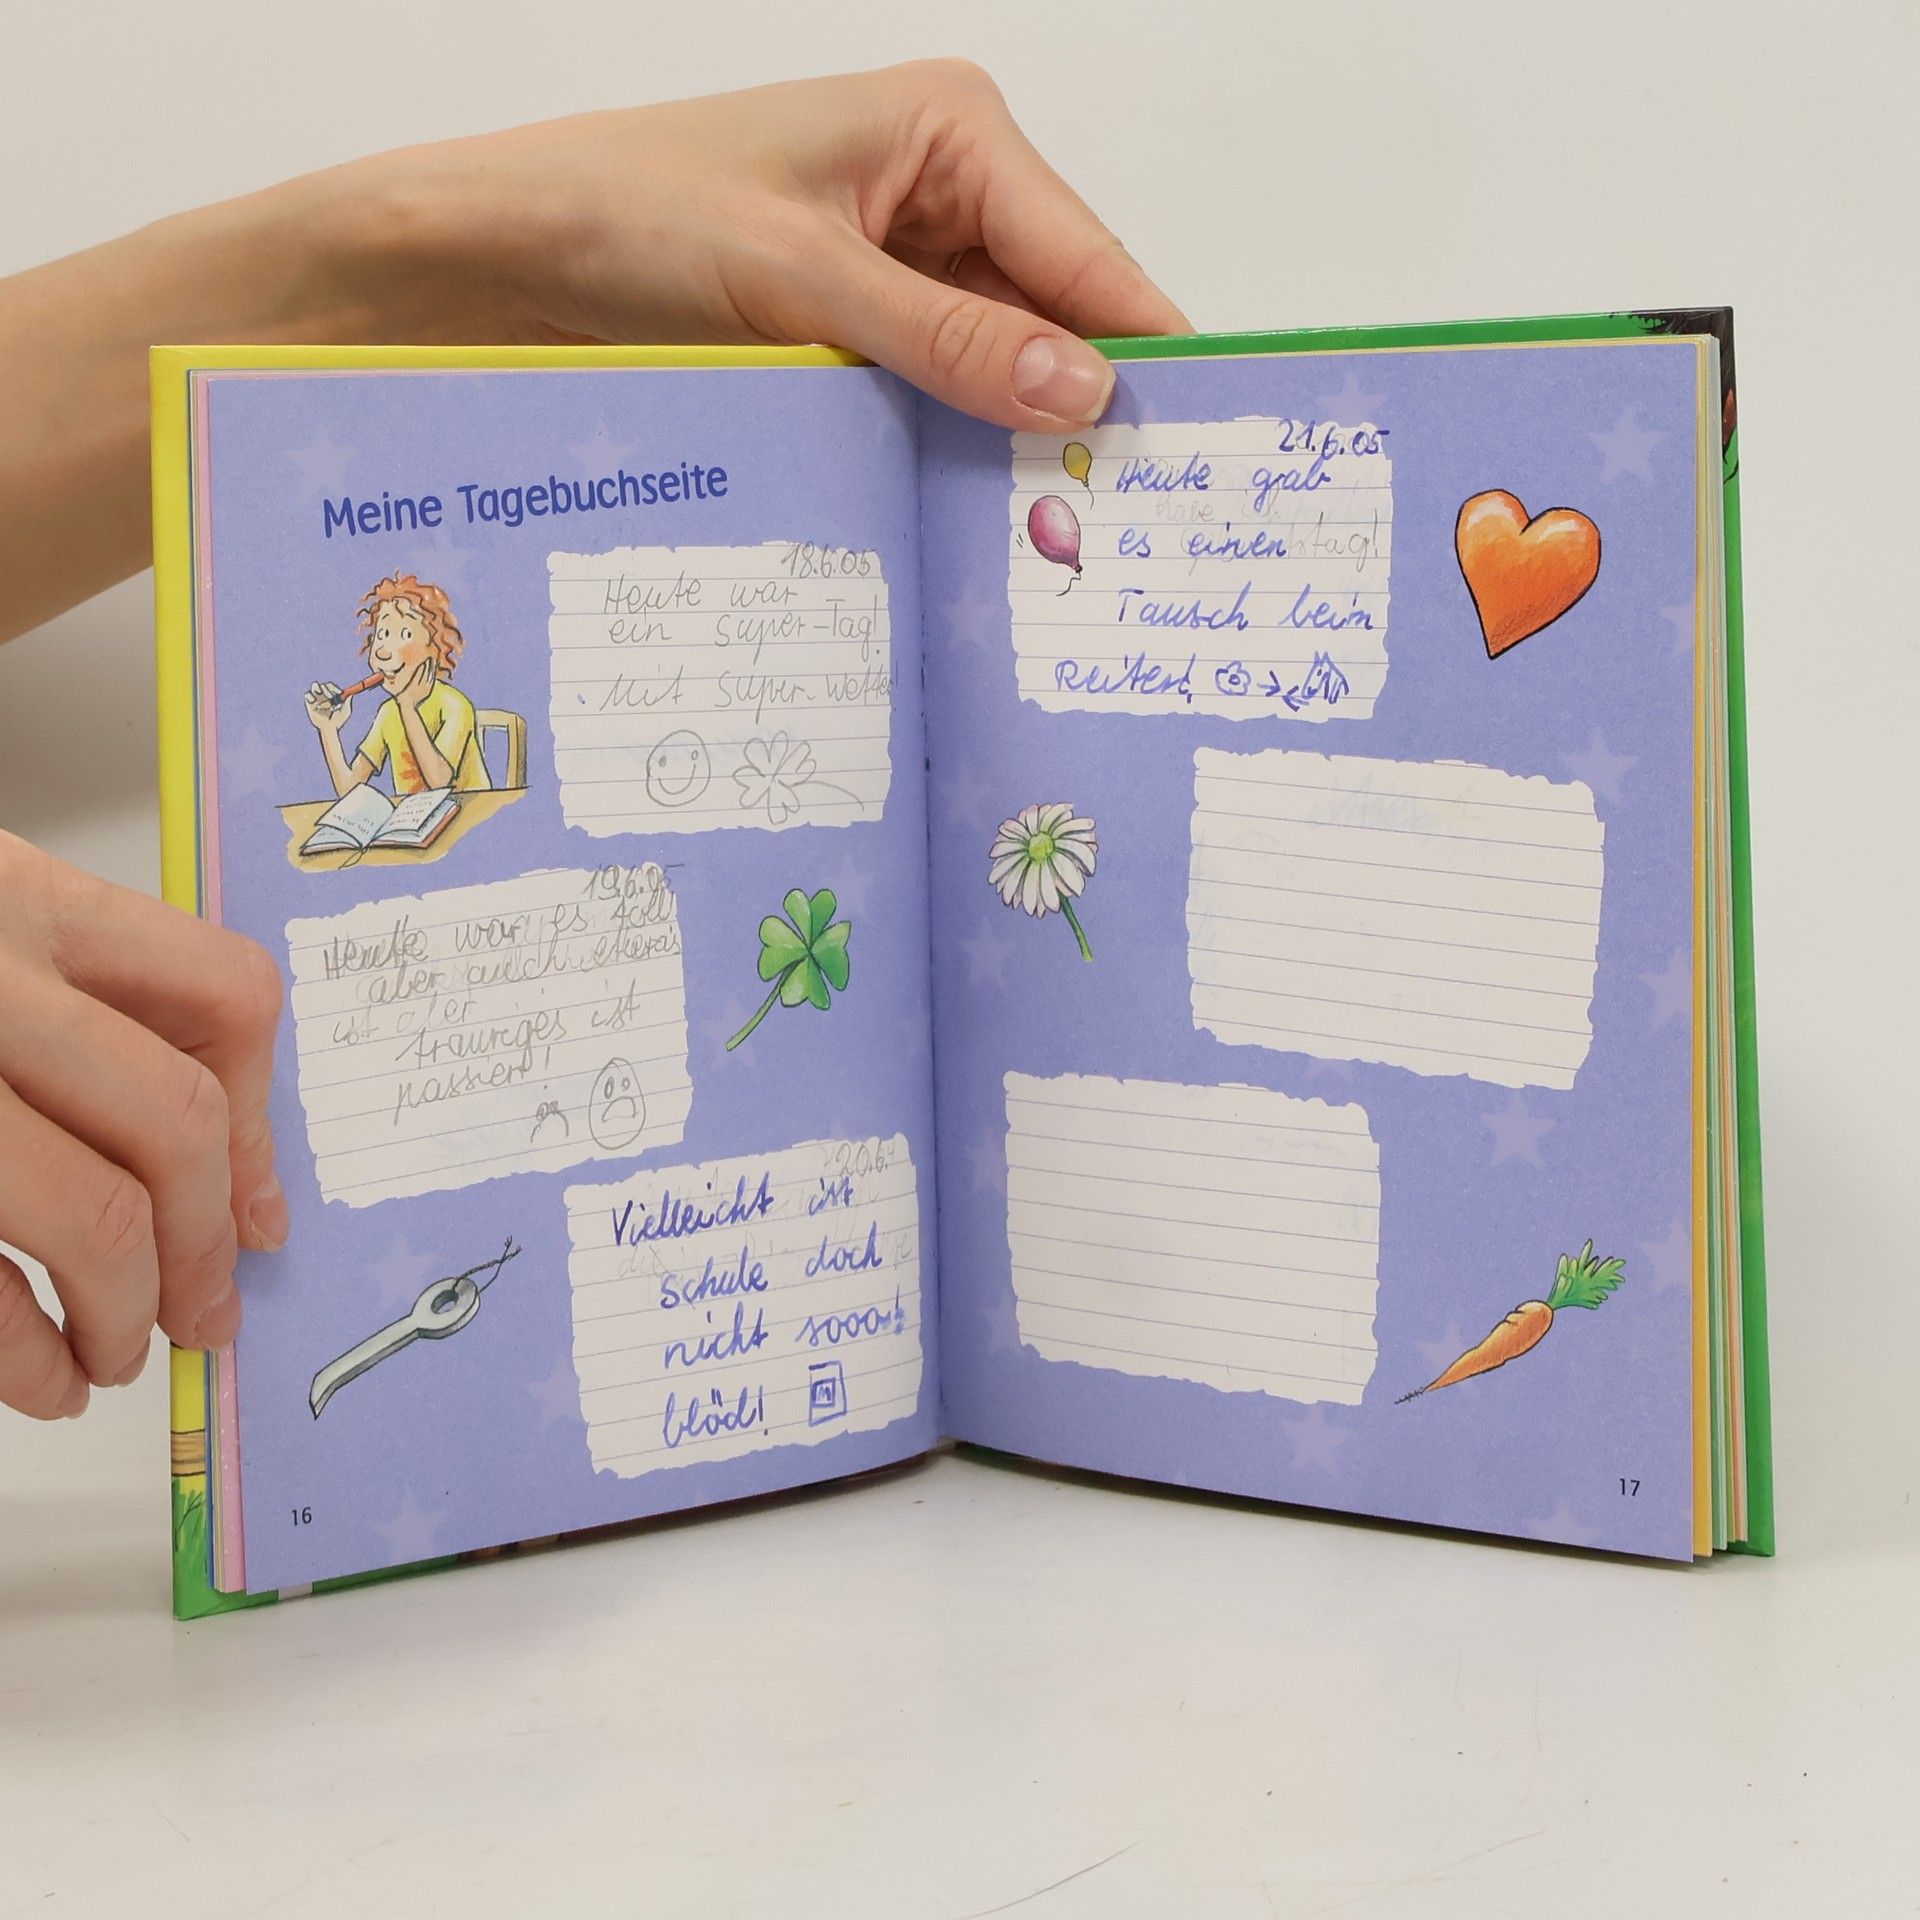 Meine Tagebuchseite
18.6.05
Heute war
ein Super-Tag!
Mit Super-Wetter!
19.6.05
Heute war es toll
aber auch etwas
ist aber
trauriges ist
passiert!
20.6.
Vielleicht ist
Schule doch
nicht sooo!
blöd!
M
16
21.6.05
Heute grab
habe
es einen
Tausch beim
Reiten!
17